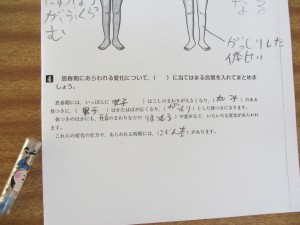 がふっくら
む
がっしりした
体せい
4 思春期にあらわれる変化について、( )に当てはまる言葉を入れてまとめま
しょう。
思春期には、いっぱんに( 女子 )はこしのまわりが大きくなり、( )のある
体つきに、( 男子 )はかたはばが広くなり、( がっしり )とした体つきになります。
体つきのほかにも、性器のまわりなどの( )や変声など、いろいろな変化があらわれ
ます。
これらの変化の仕方や、あらわれる時期には、( こじん差 )があります。